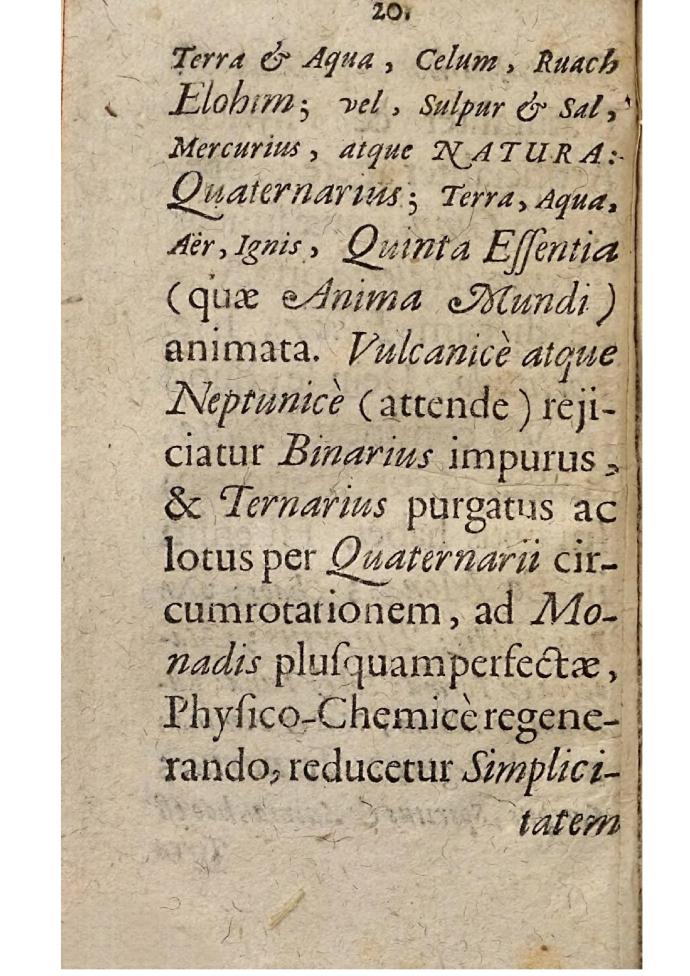 20.
Terra & Aqua, Celum, Ruach
Elohim; vel, Sulpur & Sal,
Mercurius, atque NATURA:
Quaternarius; Terra, Aqua,
Aër, Ignis, Quinta Eſſentia
(quæ Anima Mundi)
animata. Vulcanicè atque
Neptunicè (attende) reji-
ciatur Binarius impurus,
& Ternarius purgatus ac
lotus per Quaternarii cir-
cumrotationem, ad Mo-
nadis pluſquamperfectæ,
Phyſico-Chemicè regene-
rando, reducetur Simplici-
tatem